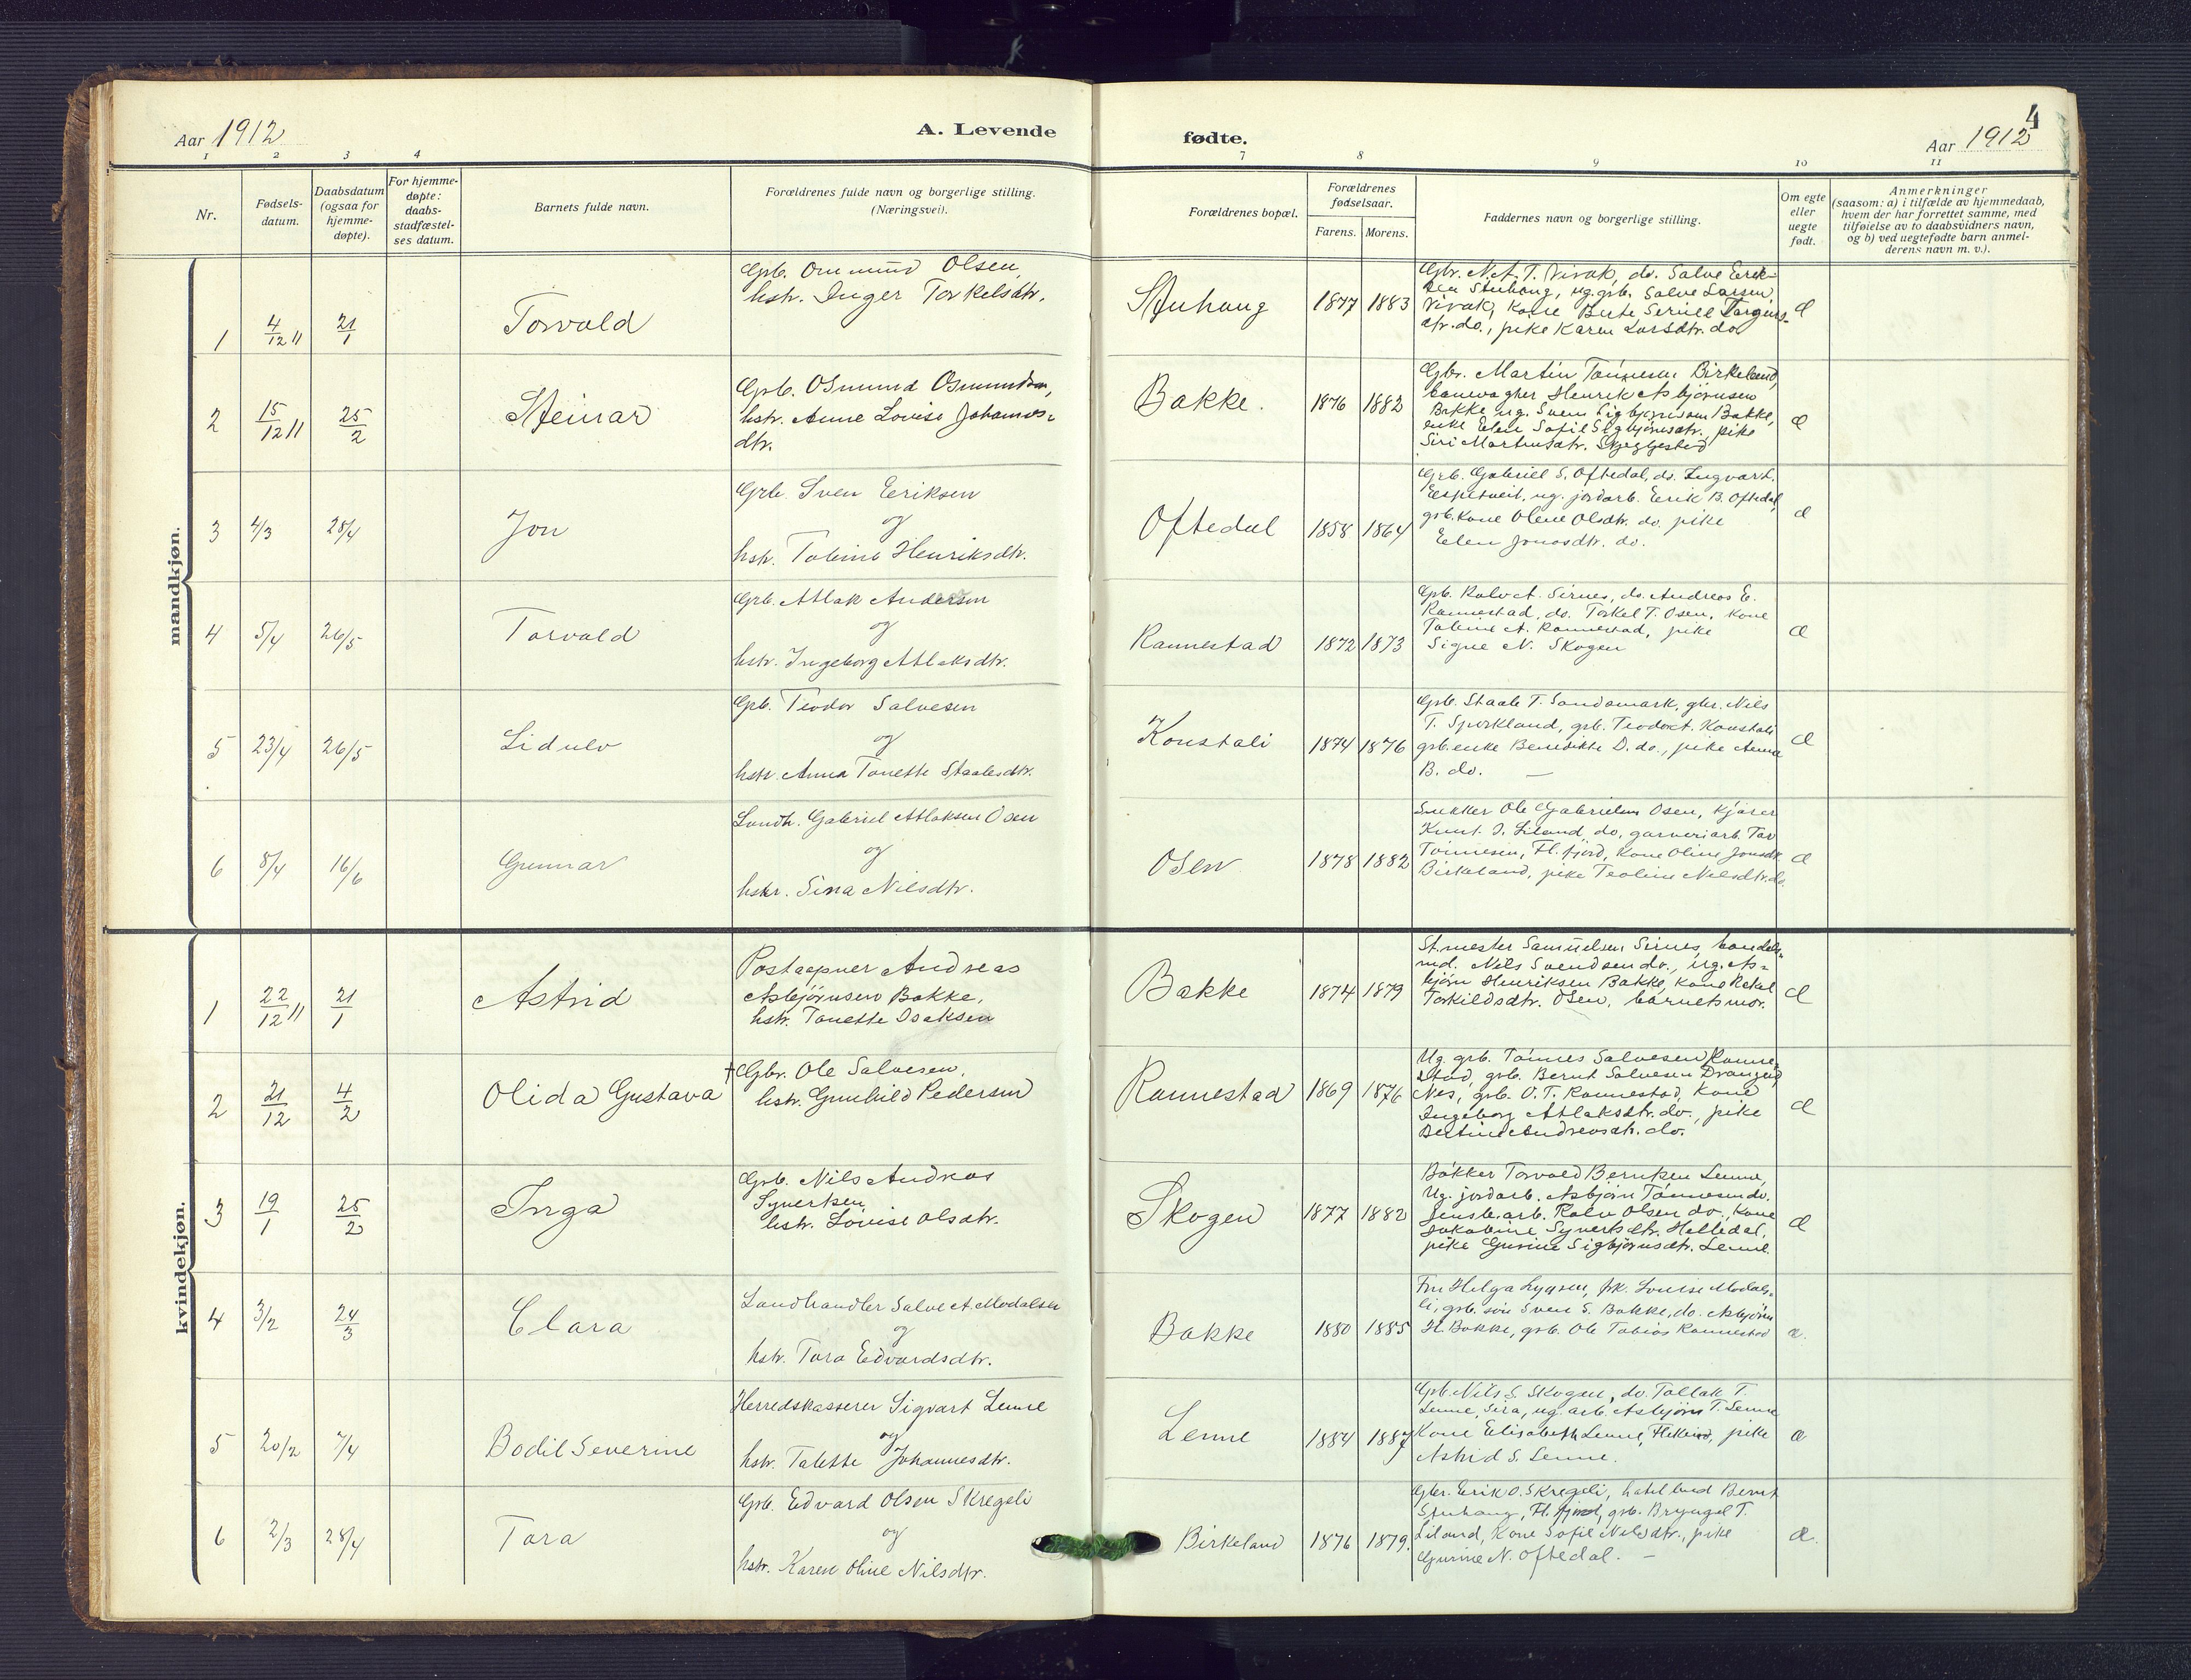 Aar 1912
A. Levende
fødte.
Aar 1912
4
1 2 3 4
7 8 9 10 11
Nr.
Fødsels-
datum.
Daabsdatum
(ogsaa for
hjemme-
døpte).
For hjemme-
døpte:
daabs-
stadfæstel-
ses datum.
Barnets fulde navn.
Forældrenes fulde navn og borgerlige stilling.
(Næringsvei).
Forældrenes bopæl.
Forældrenes
fødselsaar.
Farens. Morens.
Faddernes navn og borgerlige stilling.
Om egte
eller
uegte
født.
Anmerkninger
(saasom: a) i tilfælde av hjemmedaab,
hvem der har forrettet samme, med
tilføielse av to daabsvidners navn,
og b) ved uegtefødte barn anmel-
derens navn m. v.).
mandkjøn.
1 4/12 11 21/1 Torvald
Gpb. Ommund Olsen,
hstr. Inger Torkelsdtr.
Stuhaug 1877 1883
Salve Larsen,
pike Karen Larsdtr. do
2 15/12 11 25/2 Steinar
Gpb. Osmund Osmundsen,
hstr. Anne Lovise Johannes-
dtr.
Bakke. 1876 1882 æ
Gbr. Martin Tønnesen Birkeland,
banevogter Henrik Asbjørnsen
Bakke, ug. Sven Sigbjørnsen Bakke,
enke Elen Sofie Sigbjørnsdtr., pike
Siri Martinsdtr. Skjeggestad
3 4/3 28/4 Jon
Grb. Sven Eeriksen
og
hstr. Toline Henriksdtr.
Oftedal 1858 1864 æ
Grb. Gabriel S. Oftedal, do. Ingvart.
Eespetveit, ug. jordarb. Eerik B. Oftedal,
grb. kone Olene Olsdtr. do. pike
Eelen Jonasdtr. do.
4 5/4 26/5 Torvald
Grb. Atlak Andersen
og
hstr. Ingeborg Atlaksdtr.
Rannestad 1872 1873 æ
Gpb. Rolv A. Sirnes, do. Andreas E.
Rannestad, do. Torkel T. Osen, kone
Toline A. Rannestad, pike
Signe N. Skogen
5 23/4 26/5 Lidulv
Gpb. Teodor Salvesen
og
hstr. Anna Tonette Staalesdtr.
Konstali 1874 1876 æ
Gpb. Staale T. Sandsmark, gbr. Nils
T. Spirkland, grb. Teodor A. Konstali
grb. enke Benedikte D. do., pike Anna
B. do. —
6 8/4 16/6 Gunnar
Landh. Gabriel Atlaksen Osen
og
hstr. Sina Nilsdtr.
Osen 1878 1882 æ
Snekker Ole Gabrielsen Osen, kjører
Knut J. Liland do, garveriarb. Tor
Tønnesen, Fl. fjord, kone Oline Jonsdtr.
Birkeland, pike Teoline Nilsdtr. do.
kvindekjøn.
1 22/12 11 21/1 Astrid
Postaapner Andreas
Asbjørnsen Bakke,
hstr. Tonette Isaksen
Bakke 1874 1879 æ
St.mester Samuelsen Sirnes, handels-
md. Nils Svendsen do., ug. As-
bjørn Henriksen Bakke, kone Rakel
Torkildsdtr. Osen, barnets mor.
2 21/12 4/2 Olida Gustava
+ Gbr. Ole Salvesen,
hstr. Gunhild Pedersen
Rannestad 1869 1876 æ
Ug. grb. Tønnes Salvesen Ranne-
stad, grb. Bernt Salvesen Drangeid,
Nes, grb. O. T. Rannestad, kone
Ingeborg Atlaksdtr. do., pike
Bertine Andreasdtr. do.
3 19/1 25/2 Inga
Gpb. Nils Andreas
Syvertsen
hstr. Lovise Olsdtr.
Skogen 1877 1882 æ
Bakker Torvald Berntsen Lenne,
Ug. jordarb. Asbjørn Tønnesen do.
jenstb.arb. Rolv Olsen do., kone
Jakobine Syvertsdtr. Helledal,
pike Gurine Sigbjørnsdtr. Lenne.
4 3/2 24/3 Clara
Landhandler Salve A. Modalsen
og
hstr. Tora Edvardsdtr.
Bakke 1880 1885 æ.
Fru Helga Lyysen, frk. Lovise Modals-
li, grb. søn Sven S. Bakke, do. Asbjørn
H. Bakke, grb. Ole Tobias Rannestad
5 20/2 7/4 Bodil Severine
Herredskasserer Sigvart Lenne
og
hstr. Talette Johannesdtr.
Lenne 1884 1887 æ
Gpb. Nils S. Skogen, do. Tollak T.
Lenne, Sira, ug. arb. Asbjørn T. Lenne
kone Elisabeth Lenne, Flikeid, pike
Astrid S. Lenne.
6 2/3 28/4 Tora
Gpb. Edvard Olsen Skregeli
og
hstr. Karen Oline Nilsdtr.
Birkeland 1876 1879. æ.
Gbr. Erik O. Skregeli, hotelbud Bernt
Stuhaug, Fl. fjord, grb. Bryngel T.
Liland, kone Sofie Nilsdtr., pike
Gurine N. Oftedal. —